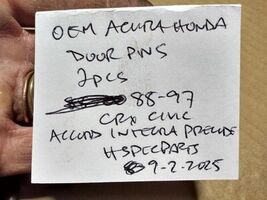 OEM ACURA HONDA
DOOR PINS
2pcs
88-97
CRX CIVIC
ACCORD INTEGRA PRELUDE
HSPECPARTS
9-2-2025